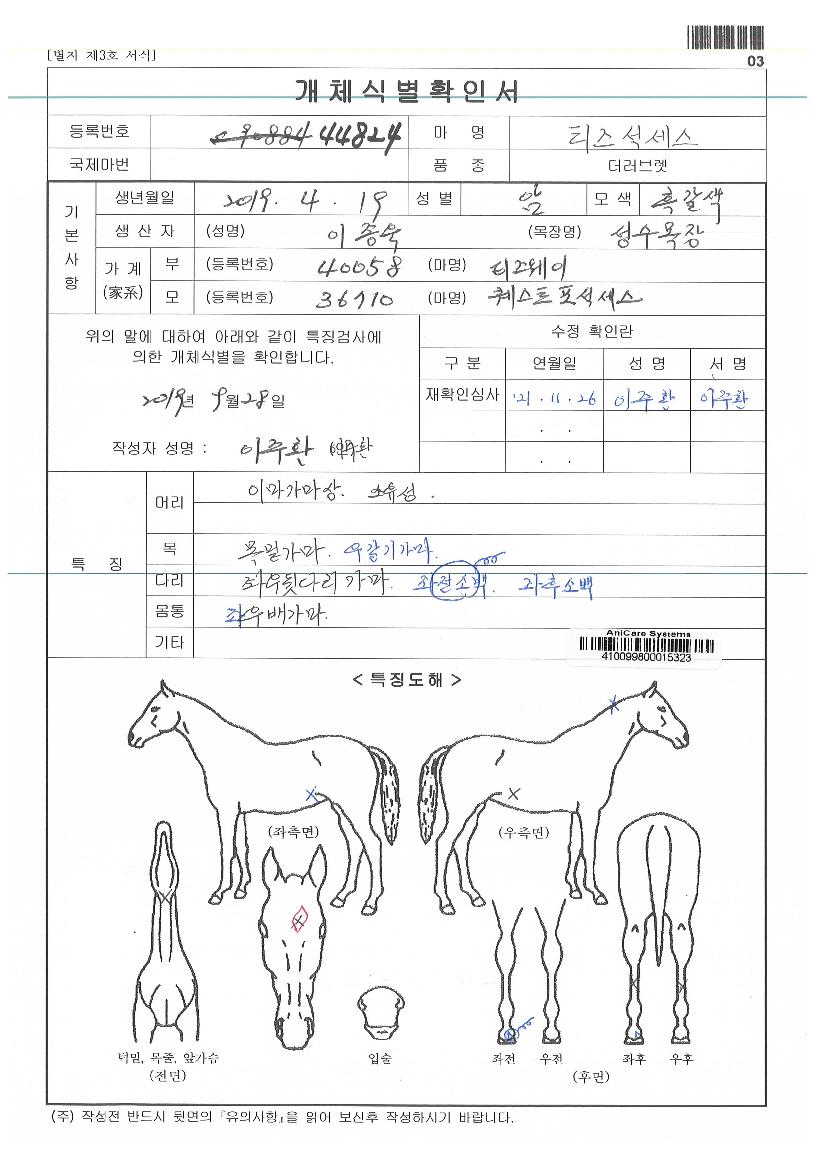 [별지 제3호 서식]
03
개체식별확인서
등록번호 44824 마 명 티즈석세스
국제마번 품 종 더러브렛
기본사항
생년월일 2019. 4. 19 성 별 암 모 색 흑갈색
생 산 자 (성명) 이종욱 (목장명) 성수목장
가 계 (家系)
부 (등록번호) 40058 (마명) 티즈웨이
모 (등록번호) 36710 (마명) 퀘스트포석세스
위의 말에 대하여 아래와 같이 특징검사에
의한 개체식별을 확인합니다.
2019년 9월 28일
작성자 성명 : 이주환 이주환
수정 확인란
구 분 연월일 성 명 서 명
재확인심사 '21 . 11 . 26 이주환 이주환
. .
. .
특 징
머리 이마가마상. 소유성.
목 목밑가마. 우갈기가마.
다리 좌우뒷다리가마. 좌전소백. 좌후소백
몸통 좌우배가마.
기타
AniCare Systems
410099800015323
< 특징도해 >
(좌측면) (우측면)
턱밑, 목줄, 앞가슴 입술 좌전 우전 좌후 우후
(전면) (후면)
(주) 작성전 반드시 뒷면의 『유의사항』을 읽어 보신후 작성하시기 바랍니다.